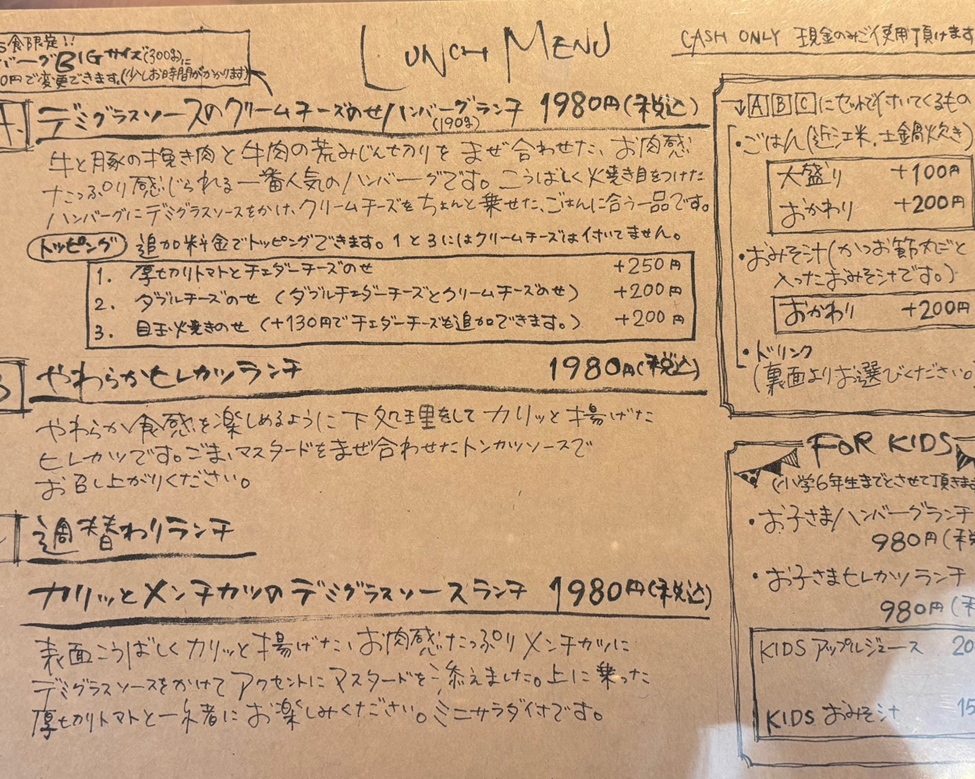 食限定!!
BIGサイズ(300g)に
0円で変更できます。(少しお時間がかかります)
LUNCH MENU
CASH ONLY 現金のみご使用頂けます
デミグラスソースのクリームチーズのせハンバーグランチ 1980円(税込)
(190g)
牛と豚の挽き肉と牛肉の荒みじん切りをまぜ合わせた、お肉感
たっぷり感じられる一番人気のハンバーグです。こうばしく焼き目をつけた
ハンバーグにデミグラスソースをかけ、クリームチーズをちょんと乗せた、ごはんに合う一品です。
トッピング 追加料金でトッピングできます。1と3にはクリームチーズは付いてません。
1. 厚切りトマトとチェダーチーズのせ +250円
2. ダブルチーズのせ (ダブルチェダーチーズとクリームチーズのせ) +200円
3. 目玉焼きのせ (+130円でチェダーチーズも追加できます。) +200円
やわらかヒレカツランチ 1980円(税込)
やわらか食感を楽しめるように下処理をしてカリッと揚げた
ヒレカツです。ごま、マスタードをまぜ合わせたトンカツソースで
お召し上がりください。
週替わりランチ
カリッとメンチカツのデミグラスソースランチ 1980円(税込)
表面こうばしくカリッと揚げた、お肉感たっぷりメンチカツに
デミグラスソースをかけてアクセントにマスタードを添えました。上に乗った
厚切りトマトと一緒にお楽しみください。ミニサラダ付です。
↓ABCにセットで付いてくるもの
・ごはん(近江米、土鍋炊き)
大盛り +100円
おかわり +200円
・おみそ汁(かつお節丸ごと
入ったおみそ汁です。)
おかわり +200円
・ドリンク
(裏面よりお選びください。
FOR KIDS
(小学6年生までとさせて頂きま
・お子さまハンバーグランチ
980円(税
・お子さまヒレカツランチ
980円(税
KIDS アップルジュース 20
KIDS おみそ汁 15